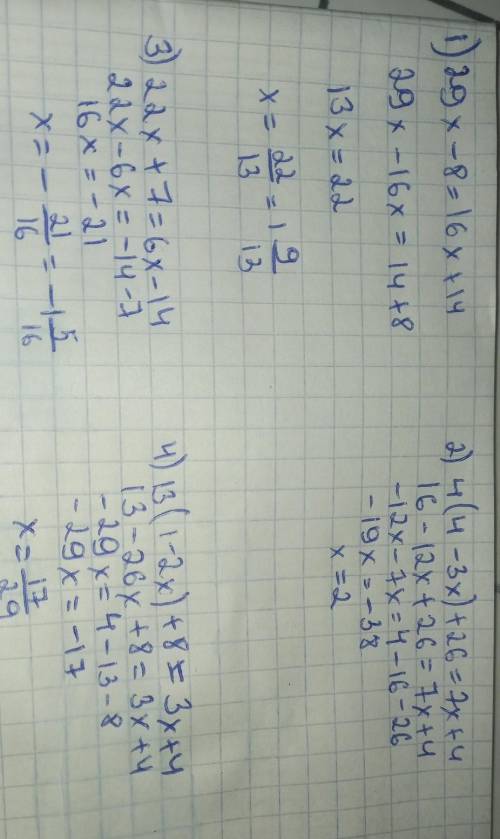 1) 29x - 8 = 16x + 14
29x - 16x = 14 + 8
13x = 22
x = 22/13 = 1 9/13
2) 4(4 - 3x) + 26 = 7x + 4
16 - 12x + 26 = 7x + 4
-12x - 7x = 4 - 16 - 26
-19x = -38
x = 2
3) 22x + 7 = 6x - 14
22x - 6x = -14 - 7
16x = -21
x = - 21/16 = -1 5/16
4) 13(1 - 2x) + 8 = 3x + 4
13 - 26x + 8 = 3x + 4
-29x = 4 - 13 - 8
-29x = -17
x = 17/29